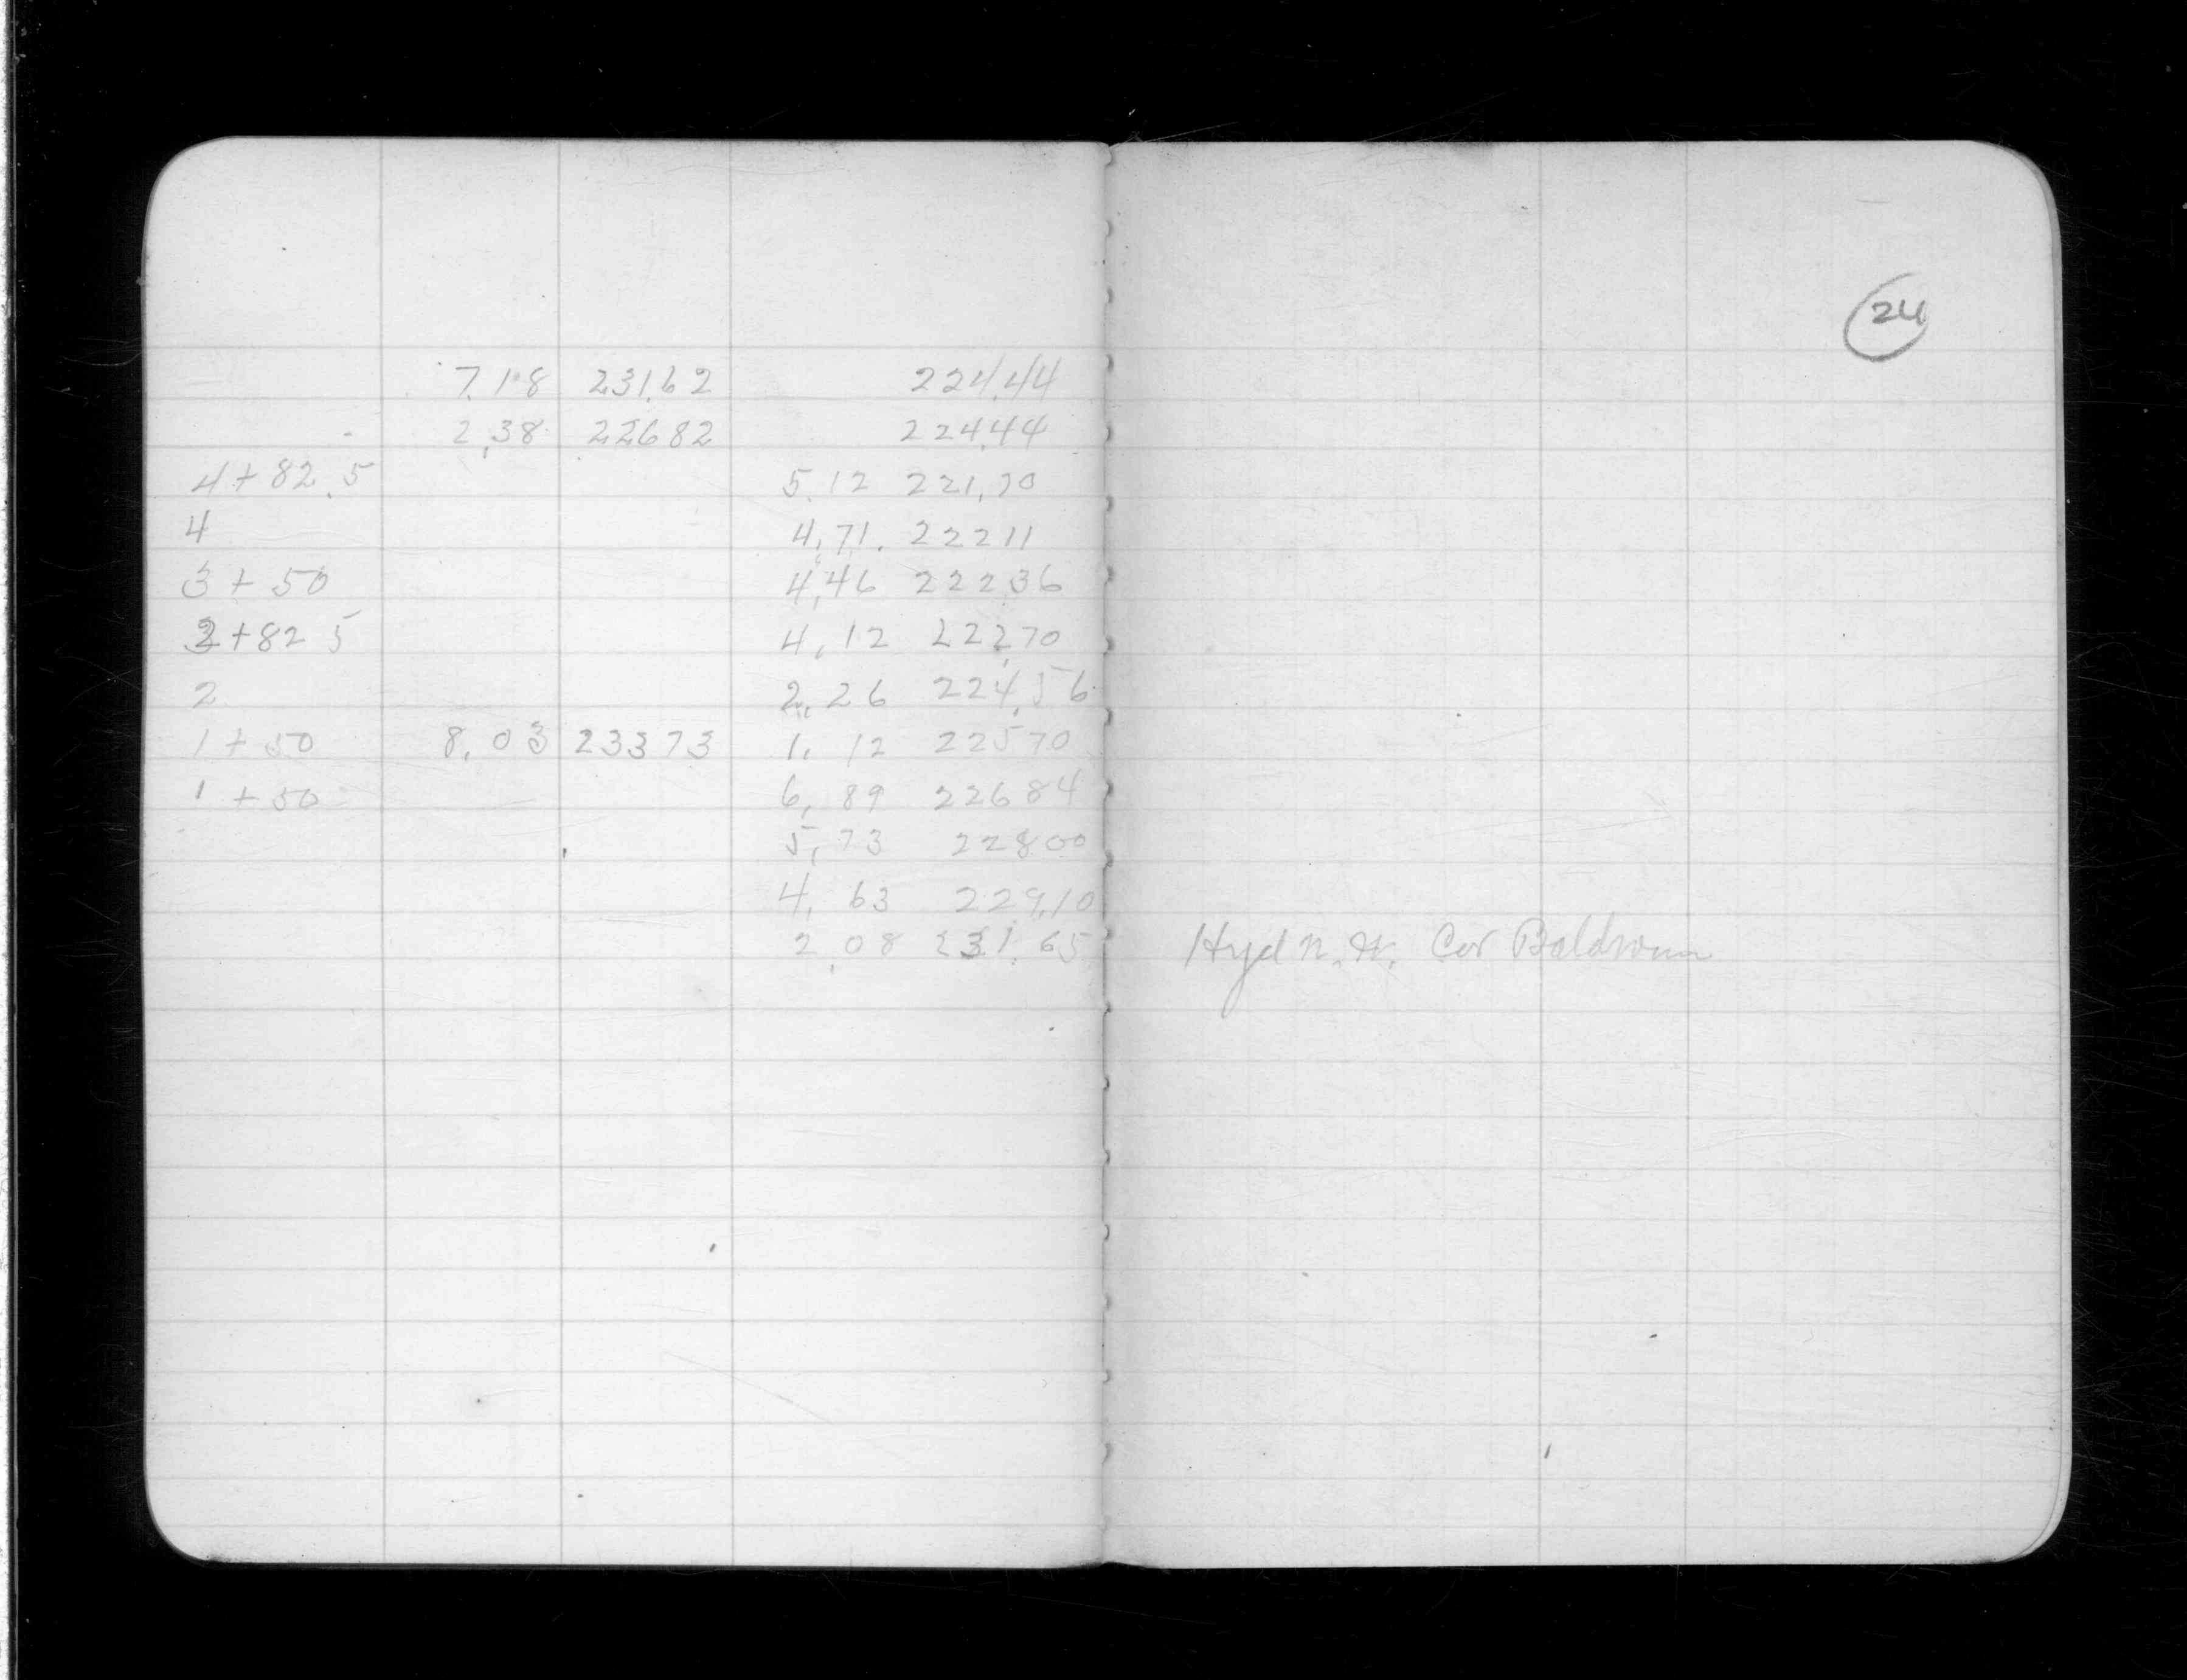 24
7.18 231.62 224.44
2.38 22682 224.44
4+82.5 5.12 221.70
4 4.71. 22211
3+50 4.46 22236
2+82 5 4.12 222.70
2 2.26 224.56
1+50 8.03 23373 1.12 22570
1+50 6.89 22684
5.73 22800
4.63 229.10
2.08 231.65 Hyd N.W. Cor Baldwin